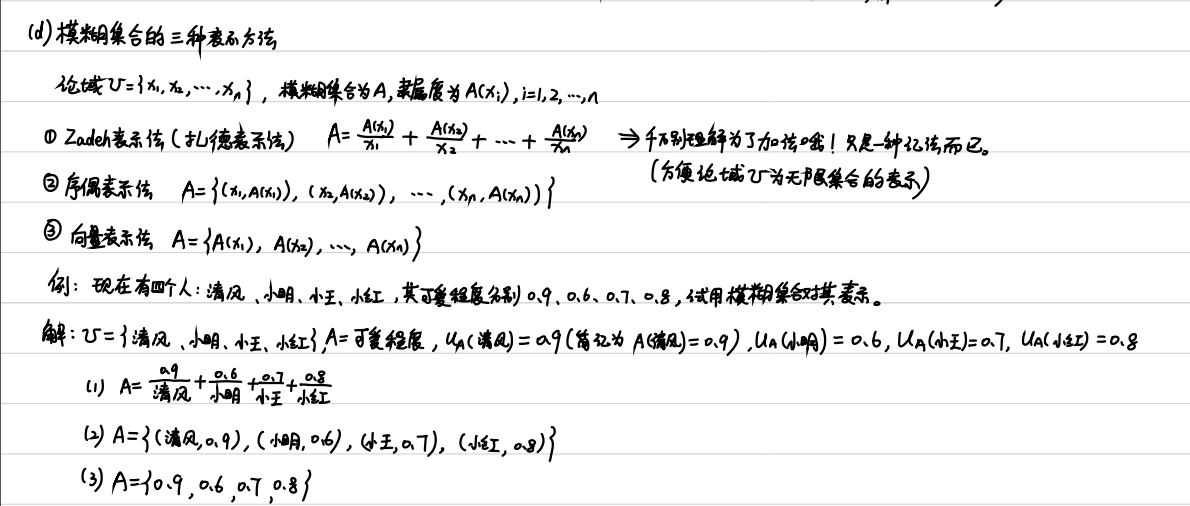 (d) 模糊集合的三种表示方法
论域U={x₁, x₂, ⋯, xₙ}, 模糊集合为A, 隶属度为A(xᵢ), i=1, 2, ⋯, n
① Zadeh表示法(扎德表示法) A= A(x₁)/x₁ + A(x₂)/x₂ + ⋯ + A(xₙ)/xₙ → 千万别理解为了加法哦! 只是一种记法而已。
(方便论域U为无限集合的表示)
② 序偶表示法 A={(x₁, A(x₁)), (x₂, A(x₂)), ⋯, (xₙ, A(xₙ))}
③ 向量表示法 A={A(x₁), A(x₂), ⋯, A(xₙ)}
例: 现在有四个人: 清风、小明、小王、小红, 其可爱程度分别0.9、0.6、0.7、0.8, 试用模糊集合对其表示。
解: U={清风、小明、小王、小红}, A=可爱程度, u_A(清风)=0.9(简记为 A(清风)=0.9), u_A(小明)=0.6, u_A(小王)=0.7, u_A(小红)=0.8
(1) A= 0.9/清风 + 0.6/小明 + 0.7/小王 + 0.8/小红
(2) A={(清风, 0.9), (小明, 0.6), (小王, 0.7), (小红, 0.8)}
(3) A={0.9, 0.6, 0.7, 0.8}